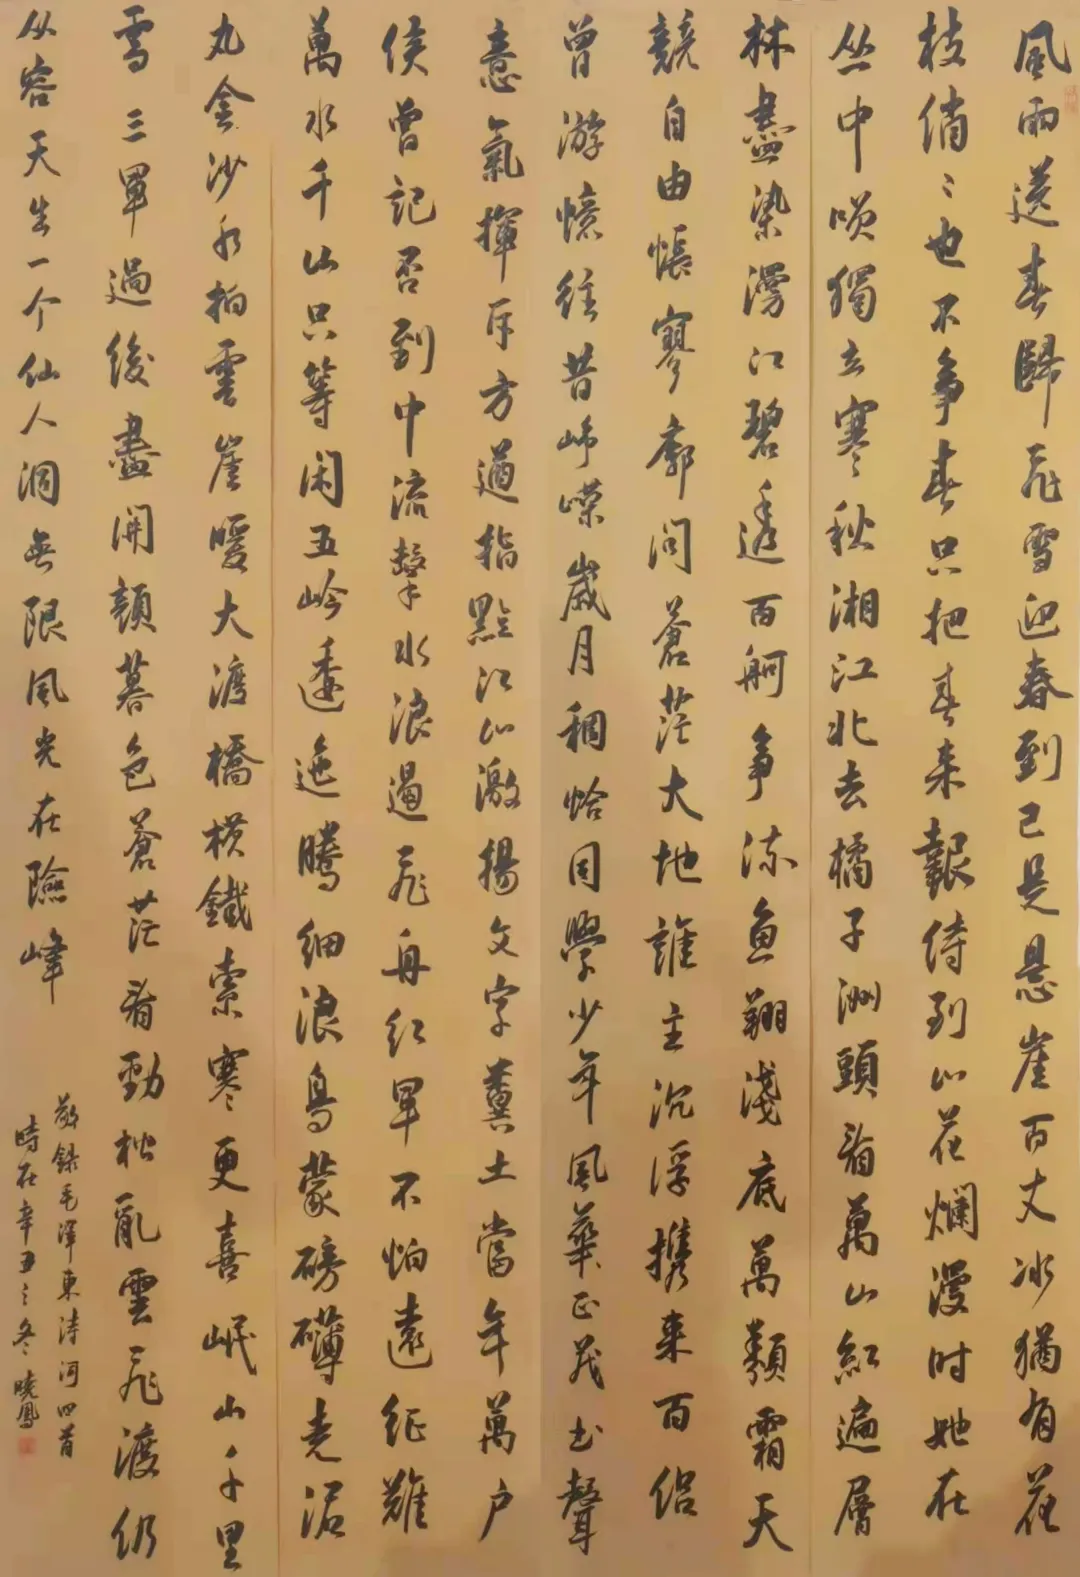 風雨送春歸飛雪迎春到已是懸崖百丈冰猶有花
枝俏〻也不爭春只把春來報待到山花爛漫时她在
丛中唉獨立寒秋湘江北去橘子洲頭看萬山紅遍層
林盡染漫江碧透百舸争流魚翔淺底萬類霜天
競自由悵寥廓问蒼茫大地誰主沉浮携来百侣
曾游憶往昔崢嶸嵗月稠恰同學少年風華正茂書聲
意氣揮斥方遒指點江山激揚文字糞土當年萬户
侯曾記否到中流擊水浪遏飛舟红軍不怕遠征難
萬水千山只等闲五岭逶迤腾细浪烏蒙磅礴走泥
丸金沙水拍雲崖暖大渡橋横鐵索寒更喜岷山千里
雪三軍過後盡開顔暮色蒼茫看勁松亂雲飛渡仍
从容天生一个仙人洞無限風光在險峰
敬錄毛澤東詩词四首
時在辛丑之冬曉鳳